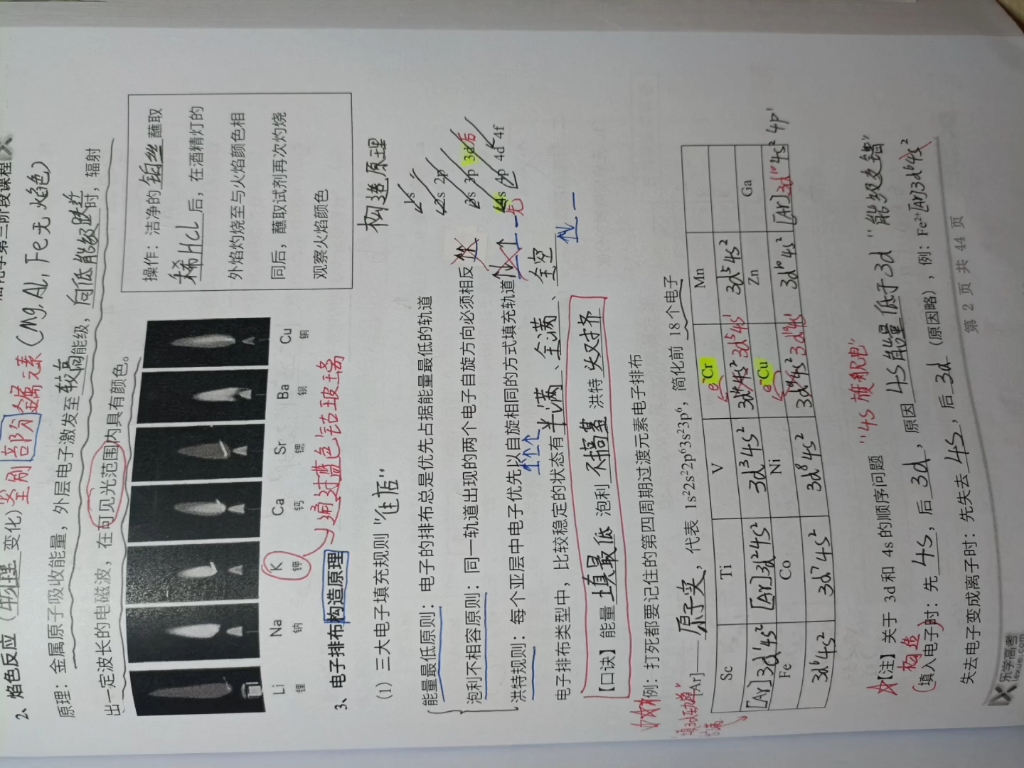 2、焰色反应（物理 变化）鉴别部分金属元素（Mg, Al, Fe无焰色）
原理：金属原子吸收能量，外层电子激发至较高的能级，向低能级跃迁时，辐射
出一定波长的电磁波，在可见光范围内具有颜色。
操作：洁净的铂丝蘸取
稀HCl后，在酒精灯的
外焰灼烧至与火焰颜色相
同后，蘸取试剂再次灼烧
观察火焰颜色
Li Na K Ca Sr Ba Cu
锂 钠 钾 钙 锶 钡 铜
通过蓝色钴玻璃
3、电子排布构造原理
（1）三大电子填充规则"住店"
构造原理
能量最低原则：电子的排布总是优先占据能量最低的轨道
泡利不相容原则：同一轨道出现的两个电子自旋方向必须相反
洪特规则：每个亚层中电子优先以自旋相同的方式填充轨道
电子排布类型中，比较稳定的状态有半满、全满、全空
1s
2s 2p
3s 3p 3d
4s 4p 4d 4f
【口诀】能量 填最低 泡利 不搞基 洪特 必须齐
例：打死都要记住的第四周期过渡元素电子排布
[Ar]——原子实，代表 1s²2s²2p⁶3s²3p⁶，简化前 18个电子
Sc Ti V Cr Mn
[Ar]3d¹4s² [Ar]3d²4s² 3d³4s² 3d⁴4s² 3d⁵4s¹ 3d⁵4s²
Fe Co Ni Cu Zn Ga
3d⁶4s² 3d⁷4s² 3d⁸4s² 3d⁹4s² 3d¹⁰4s¹ 3d¹⁰4s² [Ar]3d¹⁰4s²4p¹
【注】关于 3d 和 4s 的顺序问题 "4s
填入电子时：先 4s，后 3d，原因 4s能量低于3d "能级交错"
失去电子变成离子时：先失去 4s，后 3d（原因略），例：Fe²⁺ [Ar]3d⁶4s²
第 2 页 共 44 页
乐学高考